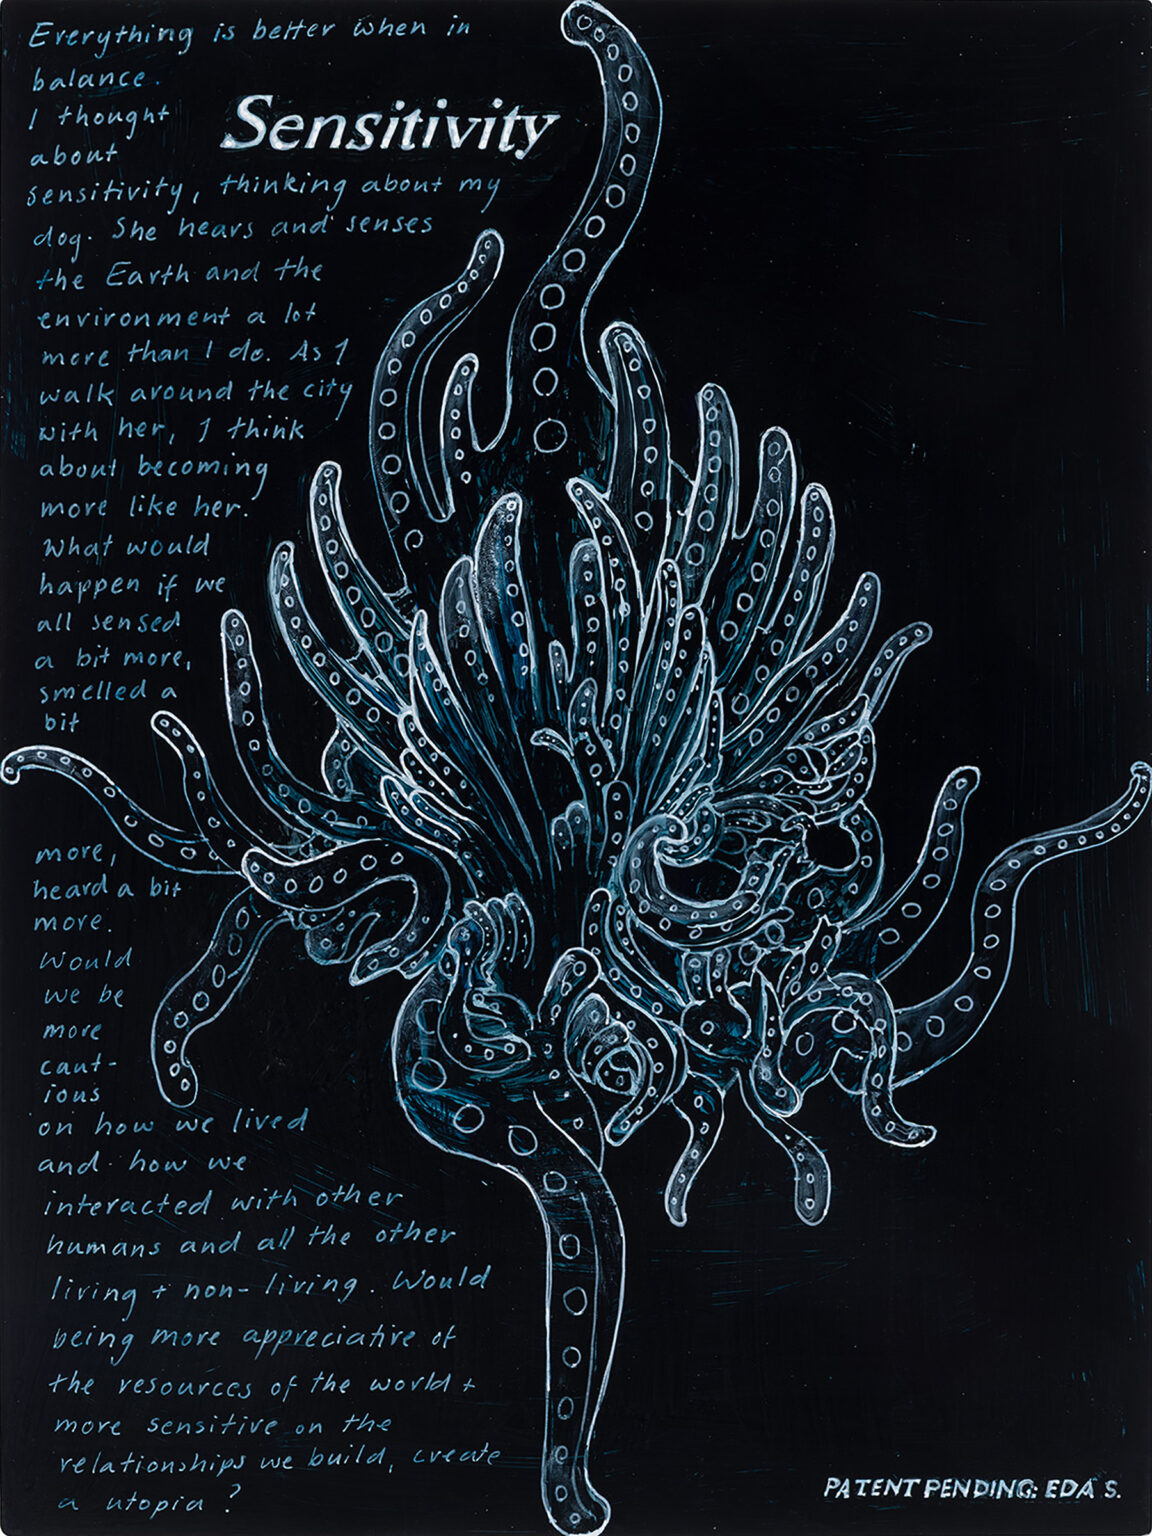 Everything is better when in
balance.
Sensitivity
I thought
about
sensitivity, thinking about my
dog. She hears and senses
the Earth and the
environment a lot
more than I do. As I
walk around the city
with her, I think
about becoming
more like her.
What would
happen if we
all sensed
a bit more,
smelled a
bit
more,
heard a bit
more.
Would
we be
more
caut-
ious
on how we lived
and how we
interacted with other
humans and all the other
living + non-living. Would
being more appreciative of
the resources of the world +
more sensitive on the
relationships we build, create
a utopia?
PATENT PENDING: EDA S.